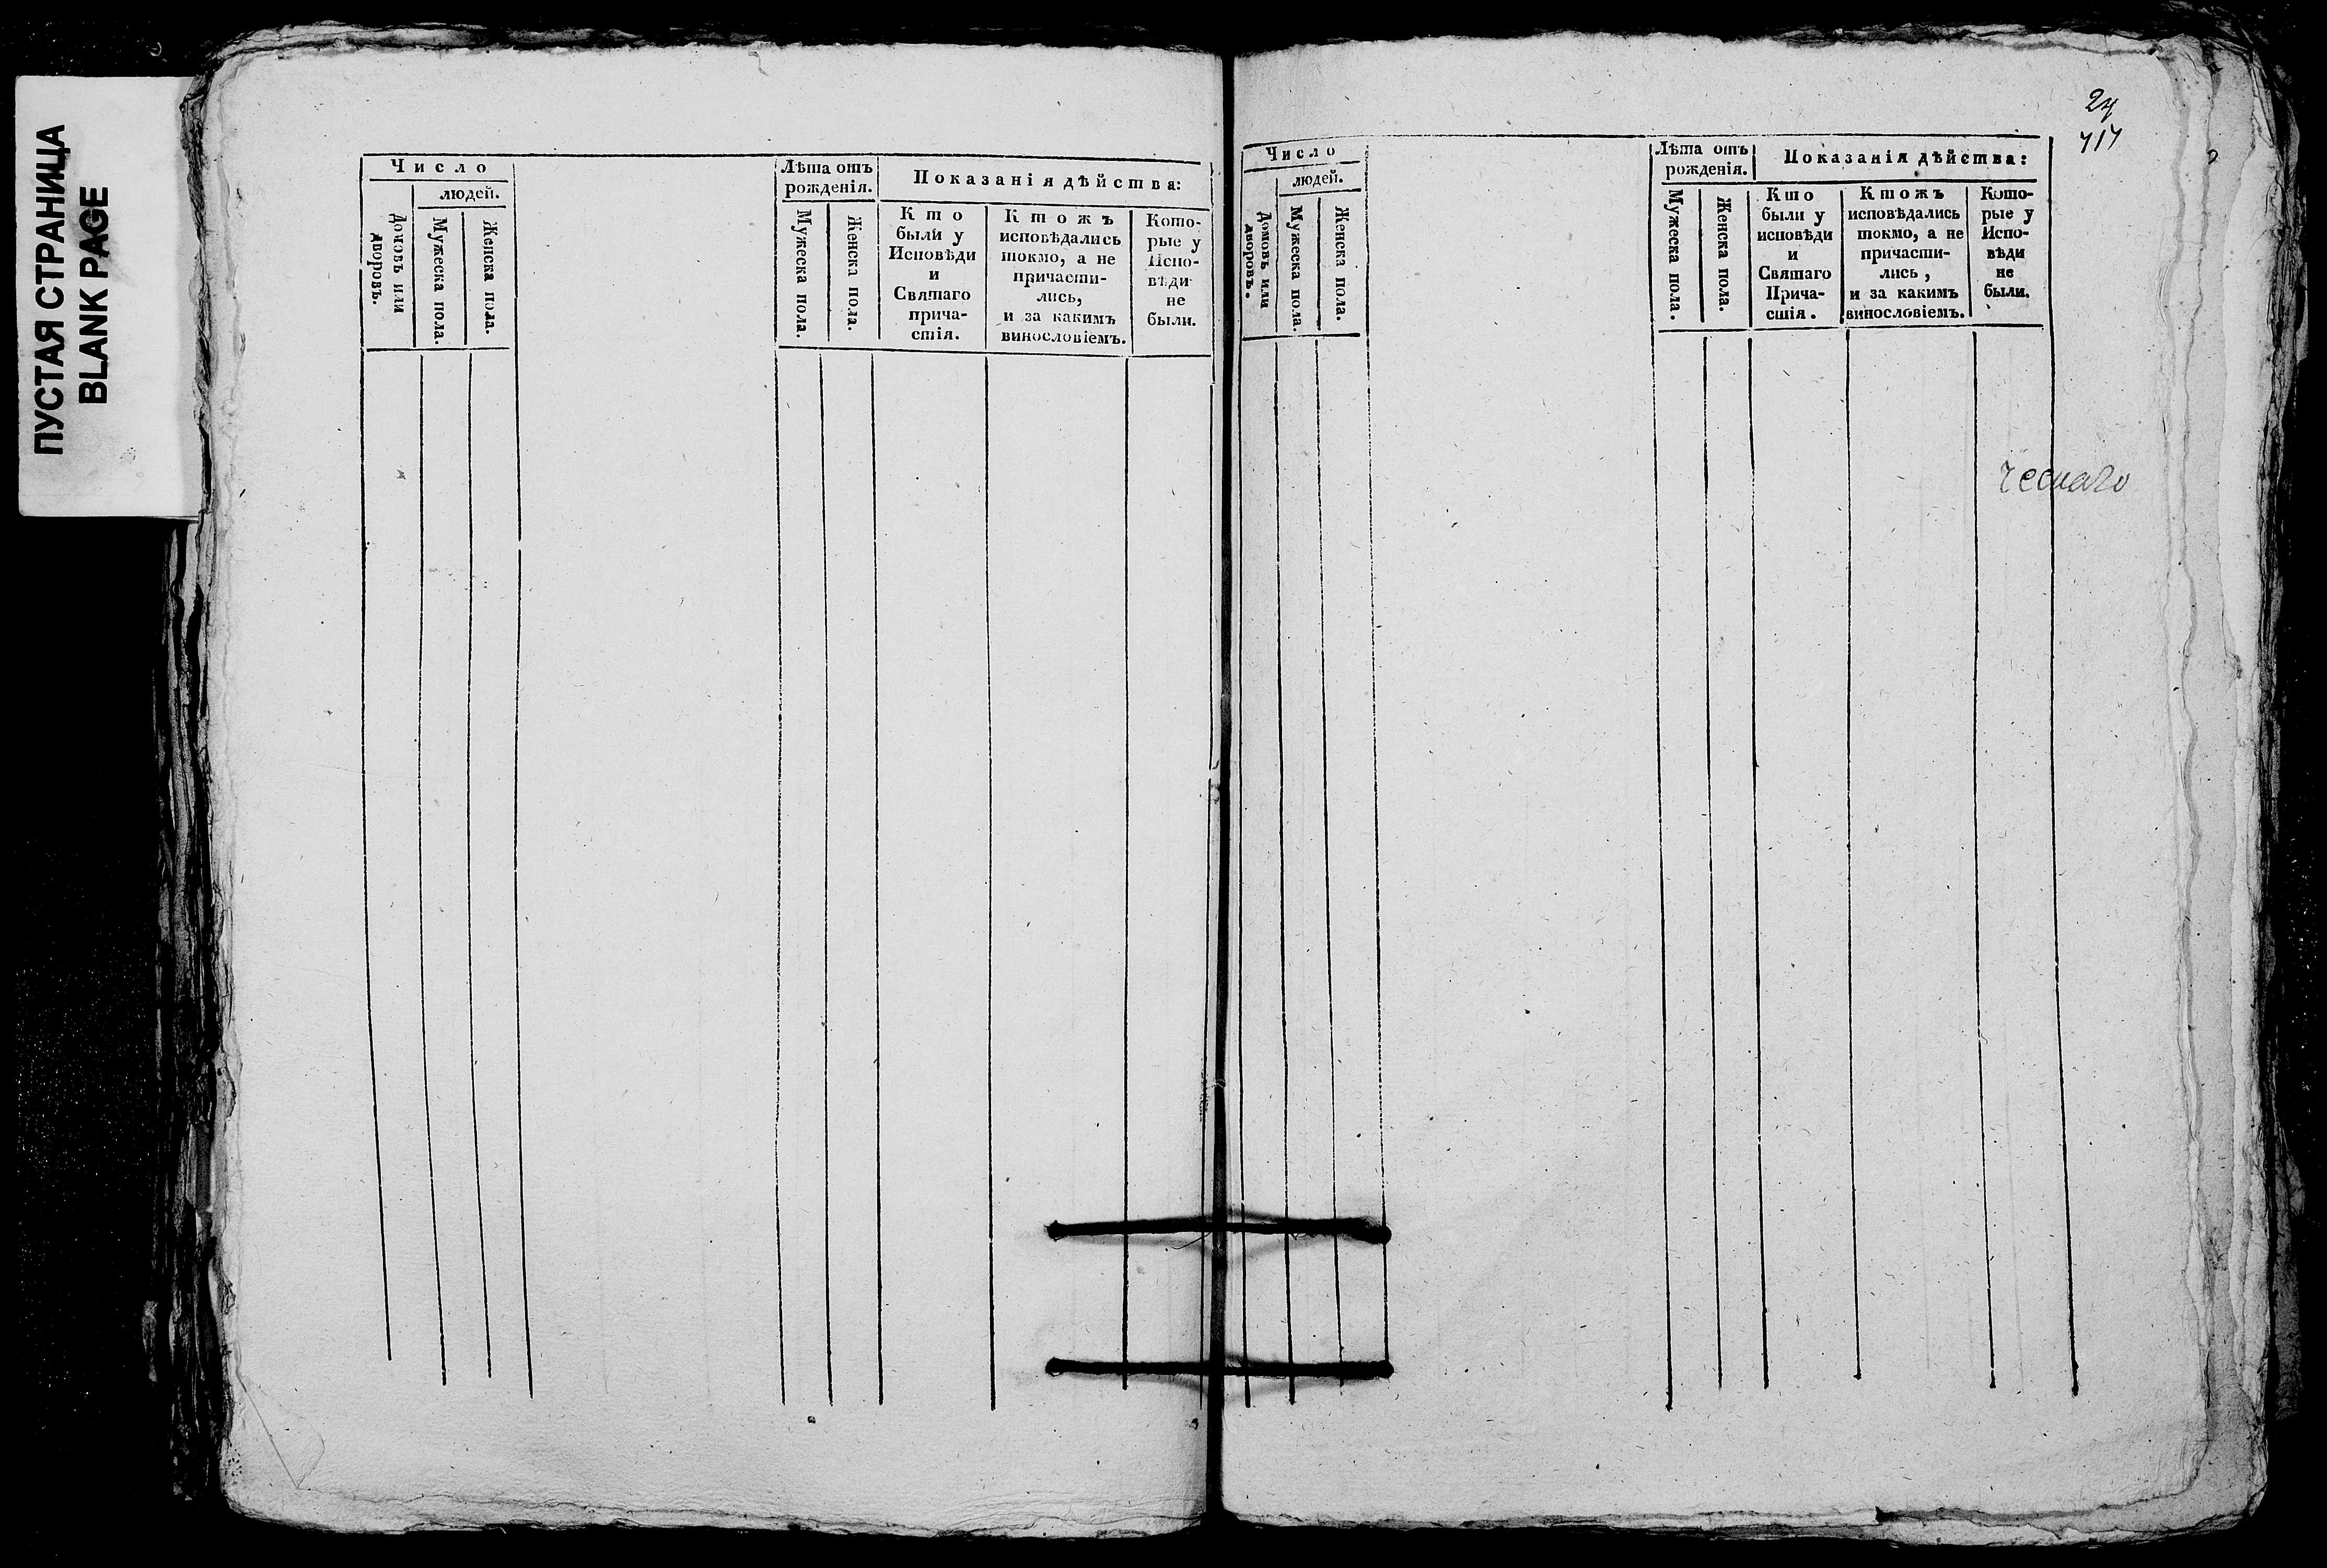 ПУСТАЯ СТРАНИЦА
BLANK PAGE
Число
людей.
Домовъ или
дворовъ.
Мужеска пола.
Женска пола.
Лѣта отъ
рожденія.
Мужеска пола.
Женска пола.
Показанія дѣйства:
Кто
были у
Исповѣди
и
Святаго
прича-
стія.
Ктожъ
исповѣдались
токмо, а не
причасти-
лись,
и за какимъ
винословіемъ.
Кото-
рые у
Испо-
вѣди
не
были.
717
Число
людей.
Домовъ или
дворовъ.
Мужеска пола.
Женска пола.
Лѣта отъ
рожденія.
Мужеска пола.
Женска пола.
Показанія дѣйства:
Кто
были у
исповѣди
и
Святаго
Прича-
стія.
Ктожъ
исповѣдались
токмо, а не
причасти-
лись,
и за какимъ
винословіемъ.
Кото-
рые у
Испо-
вѣди
не
были.